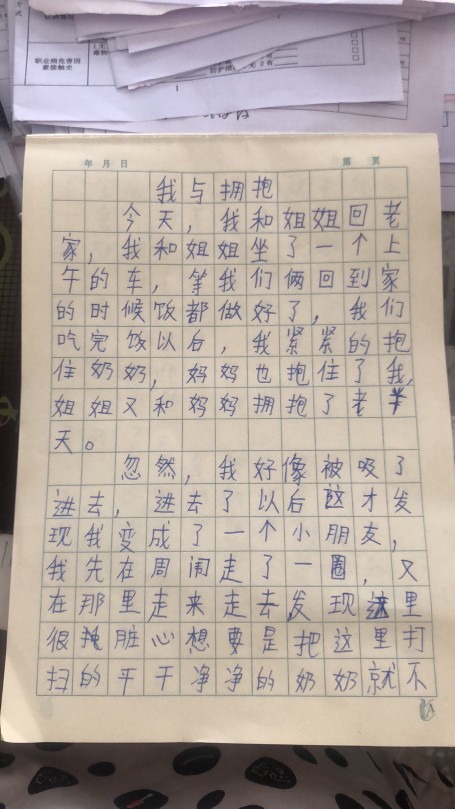 职业病危害因
素接触史
年 月 日 第 页
我与拥抱
今天，我和姐姐回老
家，我和姐姐坐了一个上
午的车，笙我们俩回到家
的时候饭都做好了，我们
吃完饭以后，我紧紧的抱
住奶奶，妈妈也抱住了我，
姐姐又和妈妈拥抱了老半
天。
忽然，我好像被吸了
进去，进去了以后这才发
现我变成了一个小朋友，
我先在周闱走了一圈，又
在那里走来走去，发现这里
很脏心想要是把这里打
扫的干干净净的奶奶就不